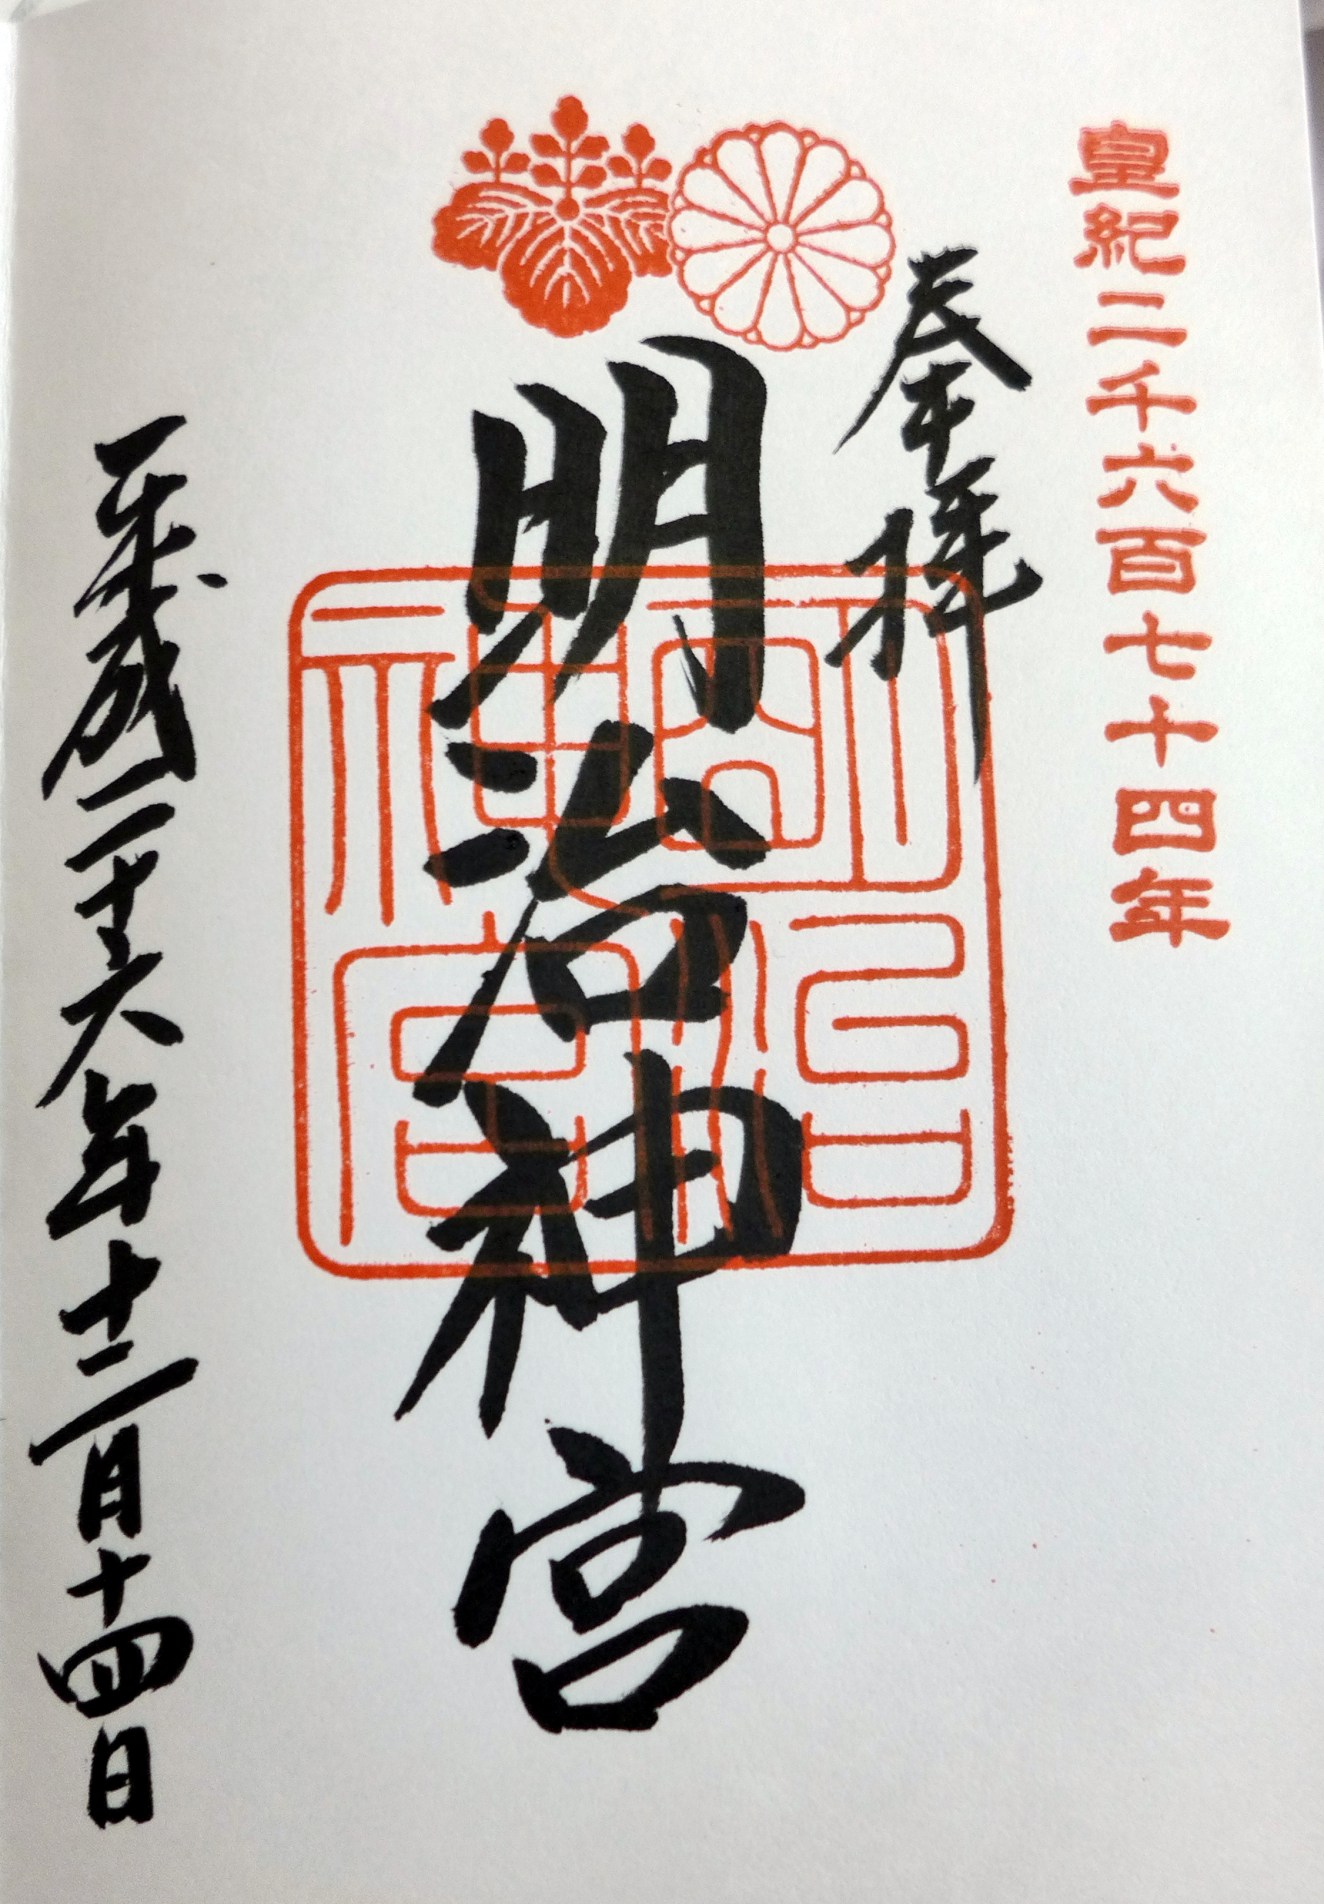 皇紀二千六百七十四年
奉拝
明治神宮
明治神宮
平成二十六年十二月十四日